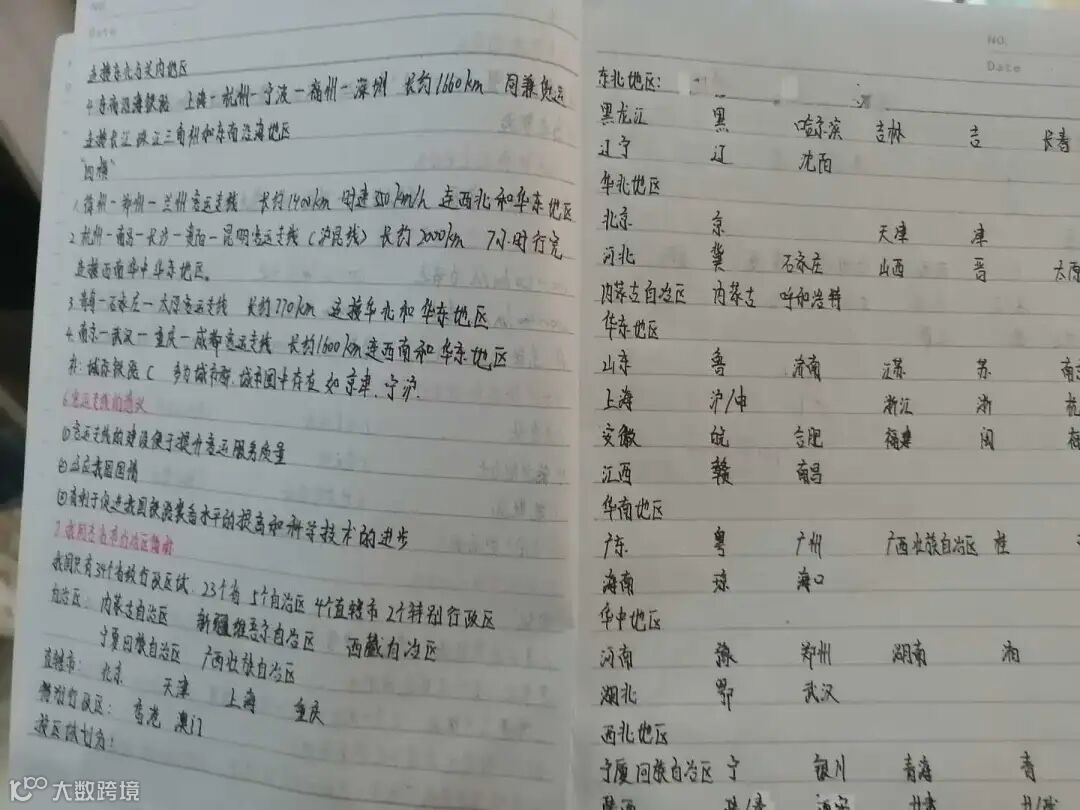 NO.
Date
连接东北与关内地区
4.东南沿海铁路 上海-杭州-宁波-福州-深圳 长约1660km 同兼货运
连接长江 珠江三角州和东南沿海地区
"四横"
1.徐州-郑州-兰州客运专线 长约1400km 时速350km/h 连西北和华东地区
2.杭州-南昌-长沙-贵阳-昆明客运专线(沪昆线) 长约2000km 7小时行完
连接西南华中华东地区。
3.青岛-石家庄-太原客运专线 长约770km 连接华北和华东地区
4.南京-武汉-重庆-成都客运专线 长约1600km连西南和华东地区
补:城际铁路C 多为城市群.城市圈中存在 如京津.宁沪.
6.客运专线的意义
①客运专线的建设便于提升客运服务质量
②适应我国国情
③有利于促进我国铁路装备水平的提高和科学技术的进步
7.我国各省市自治区简称
我国共有34个省级行政区域.23个省 5个自治区 4个直辖市 2个特别行政区
自治区:内蒙古自治区 新疆维吾尔自治区 西藏自治区
宁夏回族自治区 广西壮族自治区
直辖市:北京 天津 上海 重庆
特别行政区:香港 澳门
按区域划为:
NO.
Date
东北地区:
黑龙江 黑 哈尔滨 吉林 吉 长春
辽宁 辽 沈阳
华北地区
北京 京 天津 津
河北 冀 石家庄 山西 晋 太原
内蒙古自治区 内蒙古 呼和浩特
华东地区
山东 鲁 济南 江苏 苏 南京
上海 沪/申 浙江 浙 杭
安徽 皖 合肥 福建 闽
江西 赣 南昌
华南地区
广东 粤 广州 广西壮族自治区 桂
海南 琼 海口
华中地区
河南 豫 郑州 湖南 湘
湖北 鄂 武汉
西北地区
宁夏回族自治区 宁 银川 青海 青
大数跨境